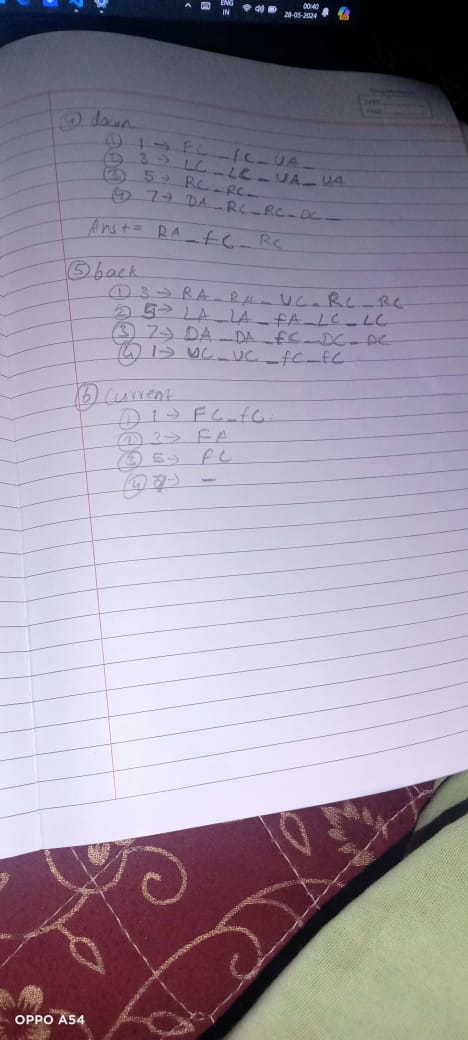 ENG
IN
00:40
28-05-2024
④ down
① 1 → FC _ fC _ UA _
② 3 → LC _ LC _ UA _ UA
③ 5 → RC _ RC _
④ 7 → DA _ RC _ RC _ DC _
Ans += RA _ fC _ RC
⑤ back
① 3 → RA _ RA _ UC _ RC _ RC
② 5 → LA _ LA _ fA _ LC _ LC
③ 7 → DA _ DA _ fC _ DC _ DC
④ 1 → UC _ UC _ fC _ fC
⑥ Current
① 1 → FC _ fC
② 3 → FA
③ 5 → fC
④ 7 → –
OPPO A54